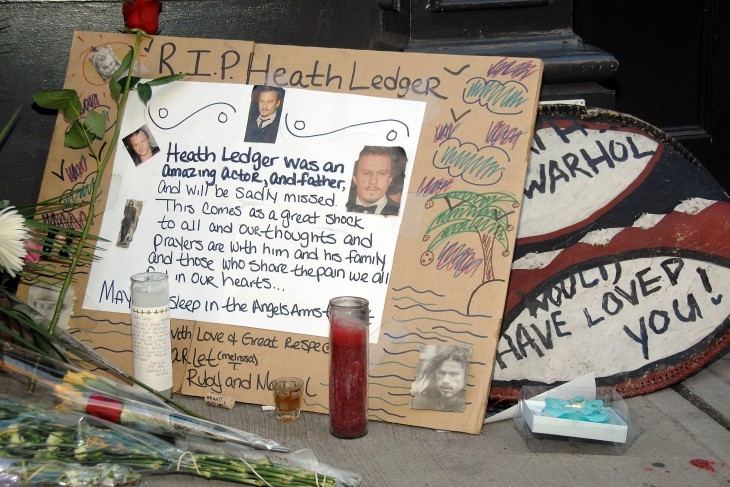 R.I.P. Heath Ledger
Heath Ledger was an
amazing actor, and father,
and will be sadly missed.
This comes as a great shock
to all and our thoughts and
prayers are with him and his family
and those who share the pain we all
in our hearts...
May sleep in the Angels Arms
with Love & Great Respe
(melissa)
Ruby and
WARHOL
WOULD
HAVE LOVED
YOU!